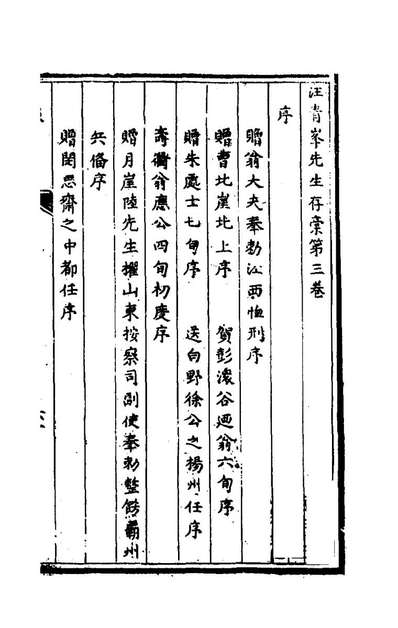 汪青峯先生存稾第三巻
序
贈翁大夫奉勑江西恤刑序
贈曹北崖北上序　賀彭濲谷廼翁六旬序
贈朱處士七旬序　送白野徐公之楊州任序
壽衢翁應公四旬初慶序
贈月崖陸先生擢山東按察司副使奉勑整飭霸州
兵備序
贈閔思齋之中都任序